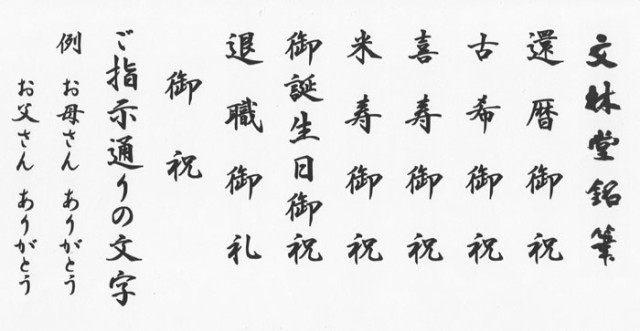 文林堂銘筆
還暦御祝
古希御祝
喜寿御祝
米寿御祝
御誕生日御祝
退職御礼
御祝
ご指示通りの文字
例 お母さん ありがとう
お父さん ありがとう